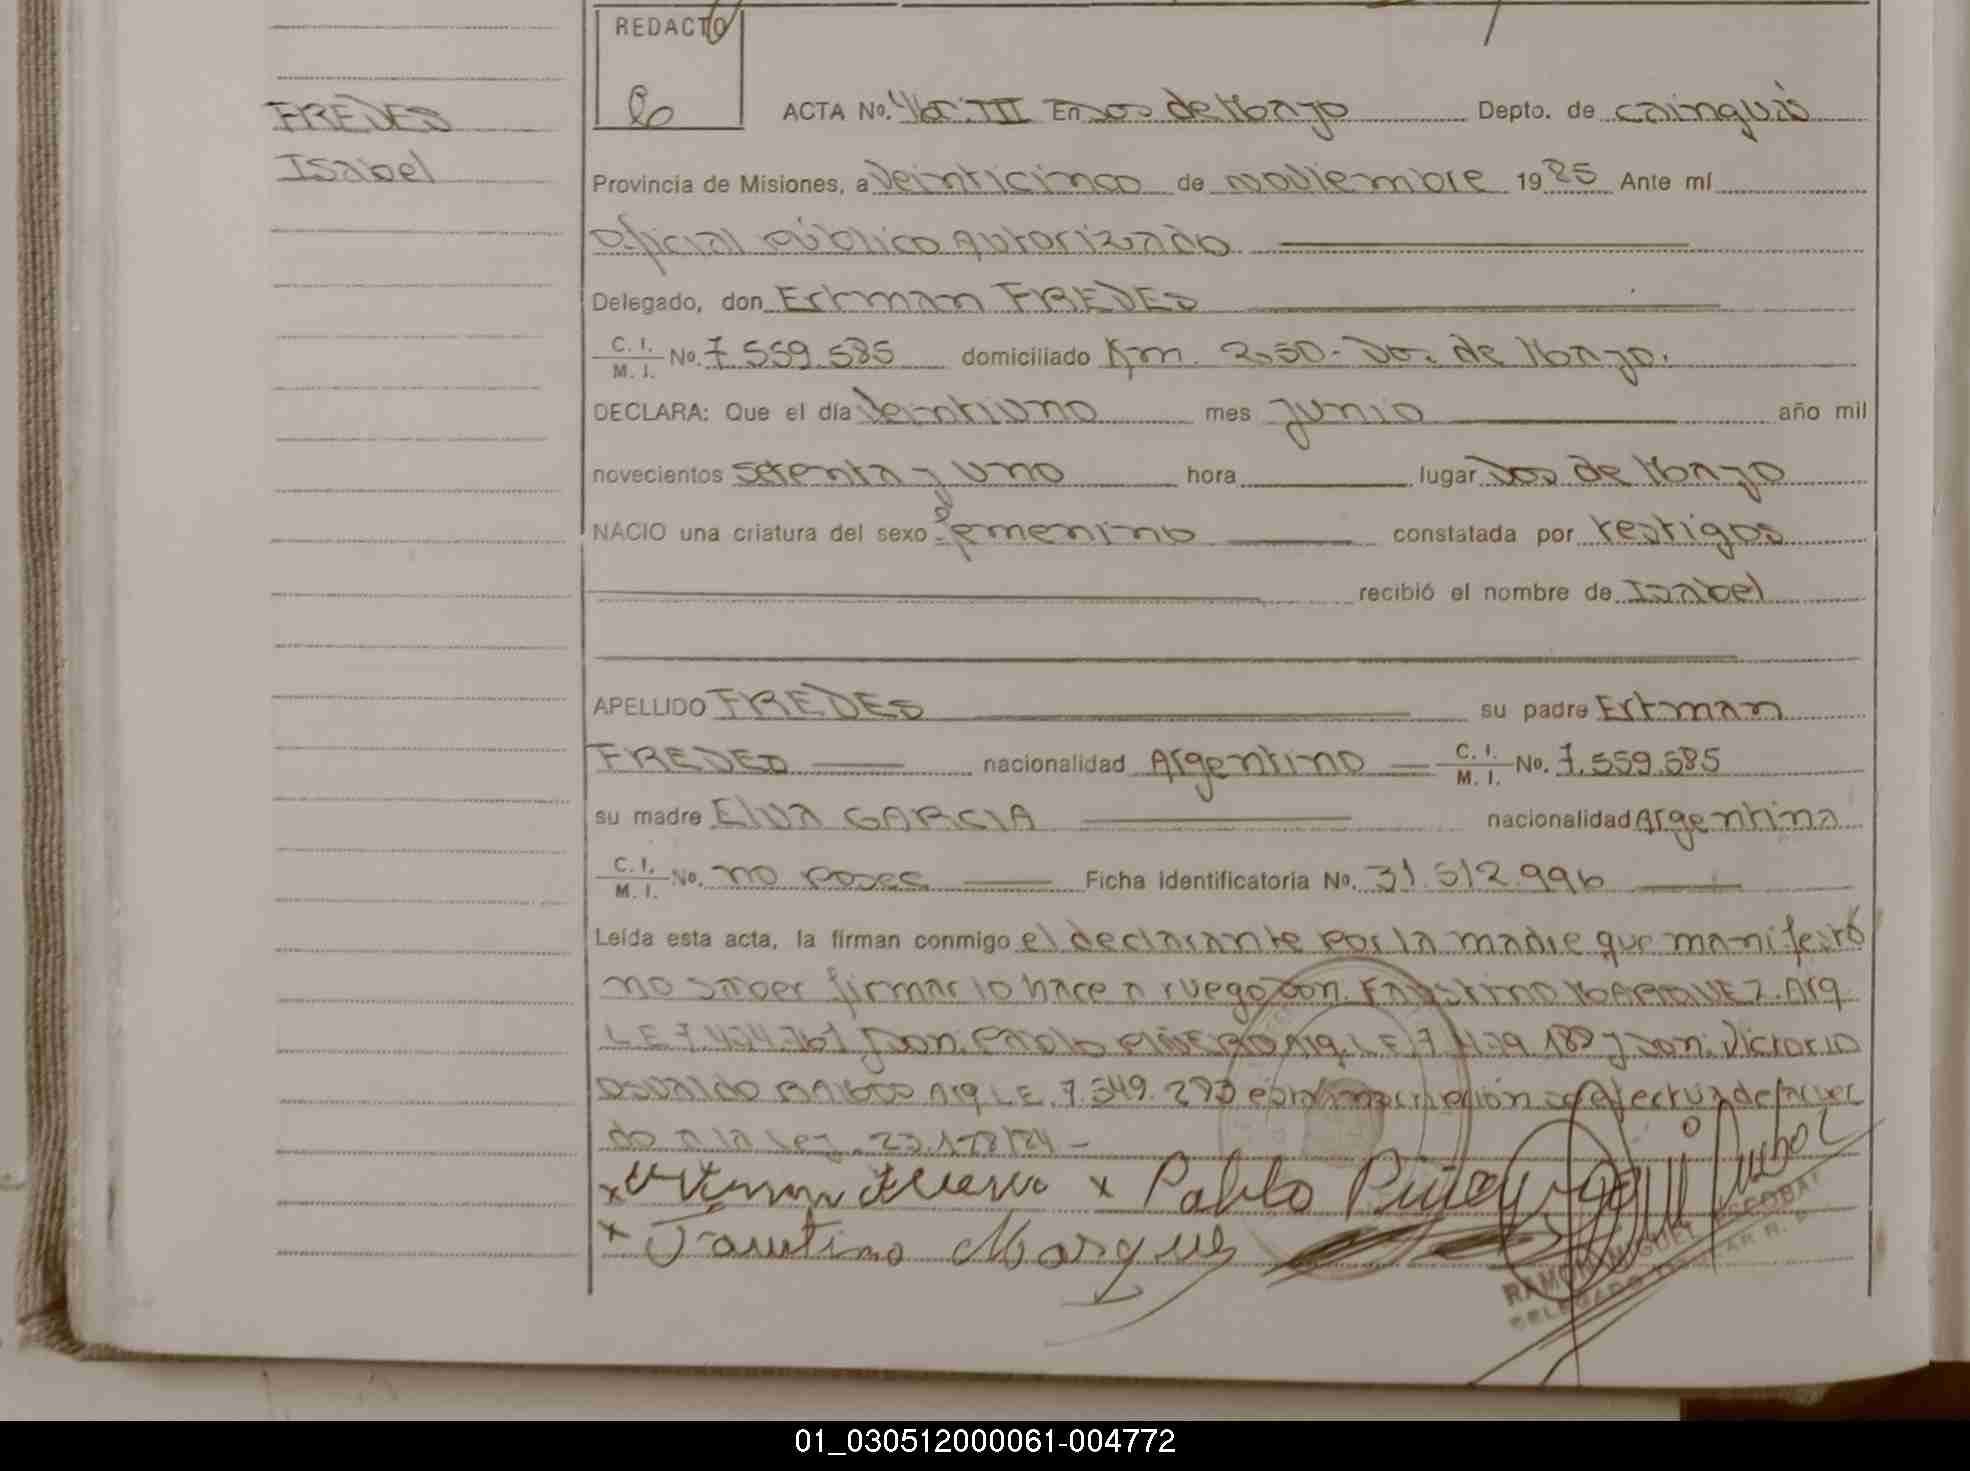 REDACTO
FREDES
Isabel
ACTA No. III En Dos de Mayo Depto. de Cainguás
Provincia de Misiones, a veinticinco de noviembre 1985 Ante mí
oficial público autorizado
Delegado, don Erkman FREDES
C. I. M. I. No. 7.559.585 domiciliado Km. 250 - Dos de Mayo.
DECLARA: Que el día veintiuno mes junio año mil
novecientos setenta y uno hora lugar Dos de Mayo
NACIO una criatura del sexo femenino constatada por testigos
recibió el nombre de Isabel
APELLIDO FREDES su padre Erkman
FREDES nacionalidad Argentino C. I. M. I. No. 7.559.585
su madre Elva GARCIA nacionalidad Argentina
C. I. M. I. No. no posee Ficha identificatoria No. 31.512.996
Leída esta acta, la firman conmigo el declarante por la madre que manifestó
no saber firmar lo hace a ruego don. Faustino MARQUEZ. Arg.
LE 7.434.761 y don. Pablo PIÑEIRO Arg. L.E. 7.439.189 y don. Victorio
Osvaldo Arg L.E. 7.549.293 esta inscripción se efectua de acuer
do a la Ley 23.178/84 -
x x Pablo
x Faustino Marques
RAMON MIGUEL ESCOBAR
DELEGADO TITULAR R. P.
01_030512000061-004772